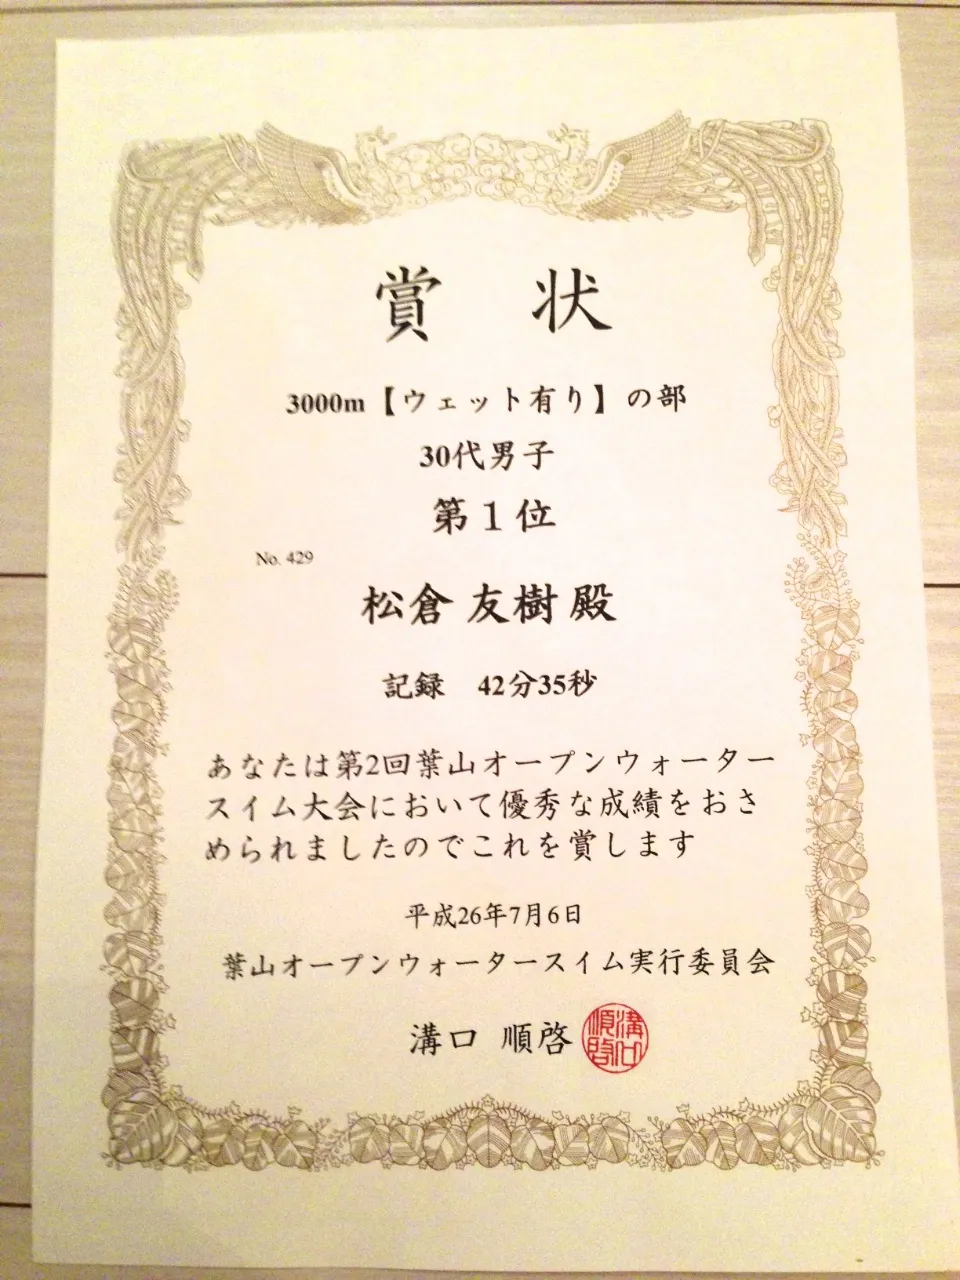 賞 状
3000m【ウェット有り】の部
30代男子
第１位
No. 429
松倉 友樹 殿
記録 42分35秒
あなたは第2回葉山オープンウォーター
スイム大会において優秀な成績をおさ
められましたのでこれを賞します
平成26年7月6日
葉山オープンウォータースイム実行委員会
溝口 順啓
溝口順啓